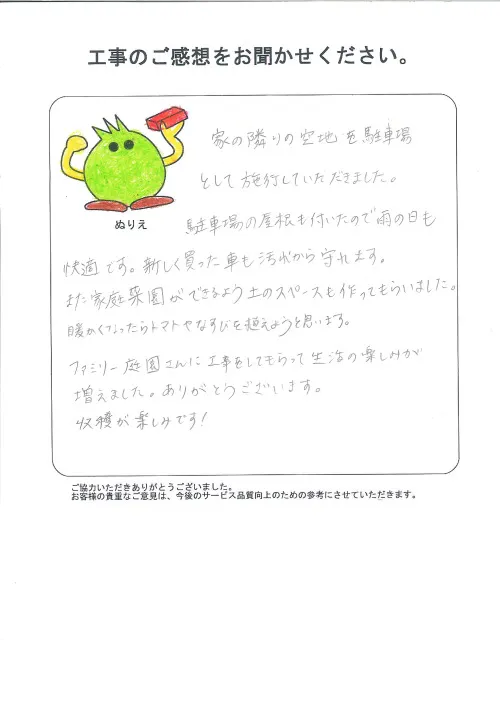 工事のご感想をお聞かせください。
家の隣りの空地を駐車場
として施行していただきました。
ぬりえ
駐車場の屋根も付いたので雨の日も
快適です。新しく買った車も汚れから守れます。
また家庭菜園ができるよう土のスペースも作ってもらいました。
暖かくなったらトマトやなすびを植えようと思います。
ファミリー庭園さんに工事をしてもらって生活の楽しみが
増えました。ありがとうございます。
収穫が楽しみです!
ご協力いただきありがとうございました。
お客様の貴重なご意見は、今後のサービス品質向上のための参考にさせていただきます。